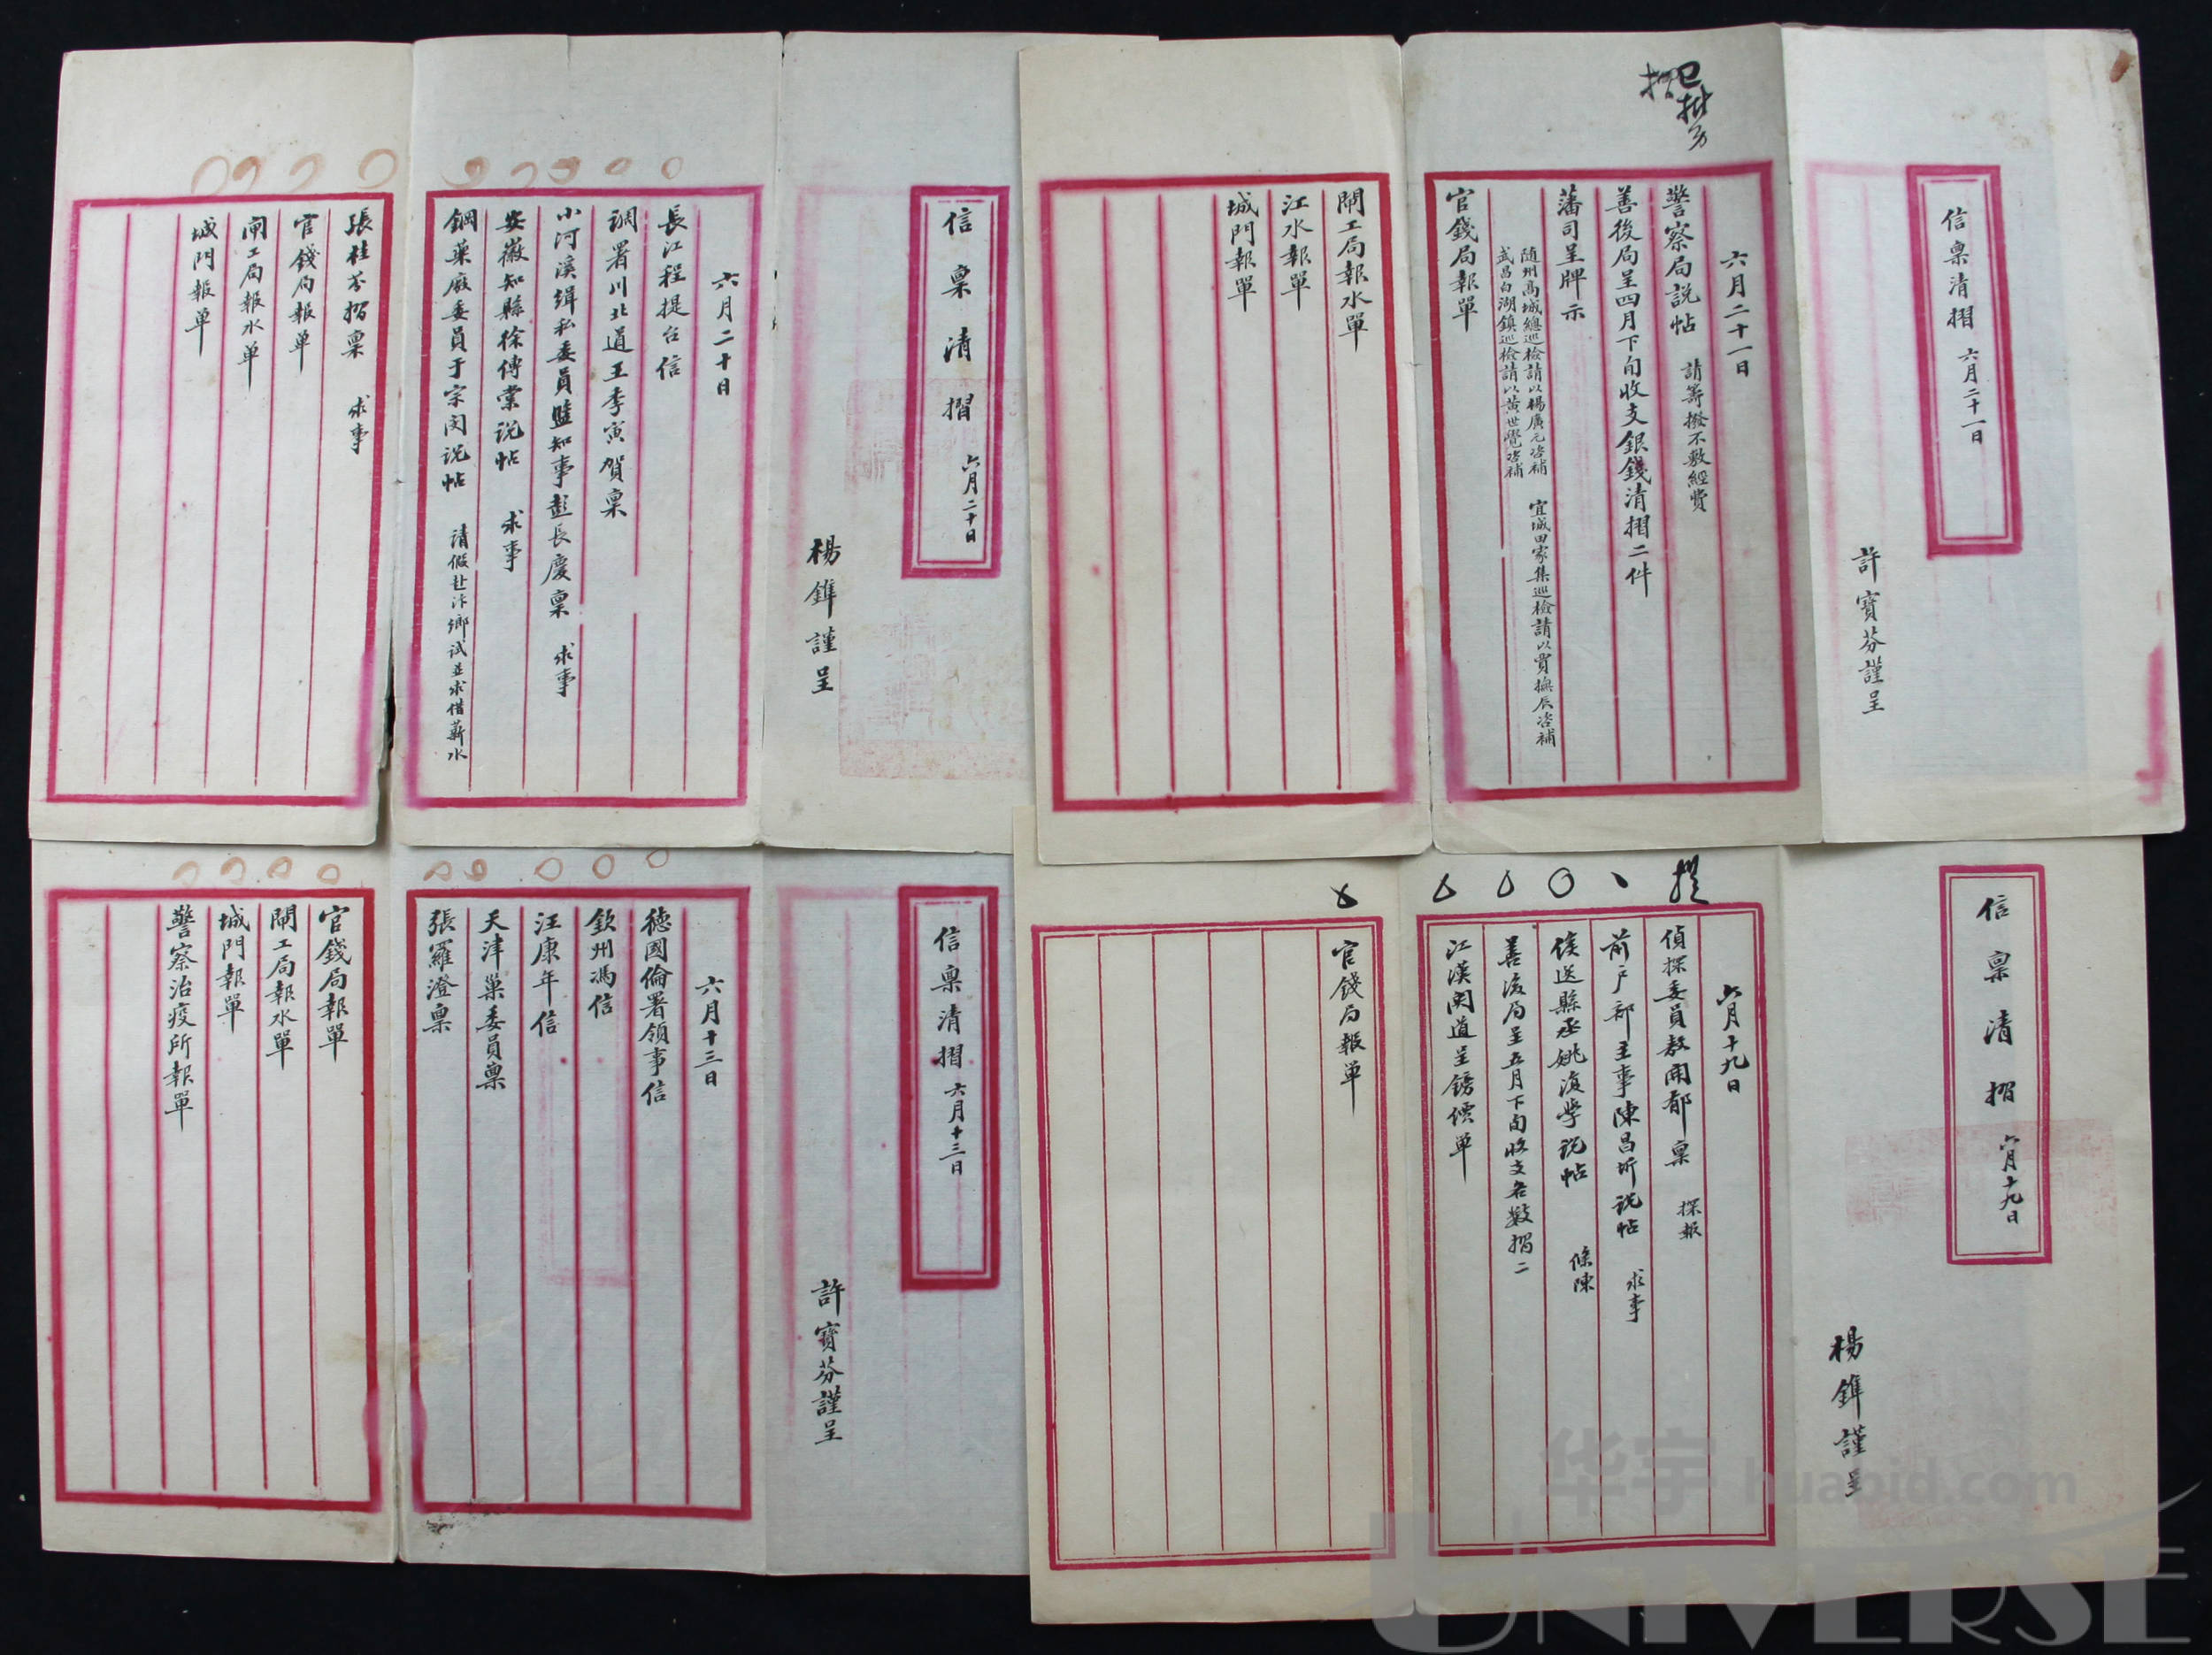 信稟清摺 六月二十一日
許寶芬謹呈
六月二十一日
警察局說帖 請籌撥不敷經費
善後局呈四月下旬收支銀錢清摺二件
藩司呈牌示
隨州高城總巡檢請以楊廣元咨補 宜城田家集巡檢請以賈撫辰咨補
武昌白湖鎮巡檢請以黃世覺咨補
官錢局報單
閘工局報水單
江水報單
城門報單
信稟清摺 六月二十日
楊錐謹呈
六月二十日
長江程提台信
調署川北道王季寅賀稟
小河溪緝私委員鹽知事彭長慶稟 求事
安徽知縣徐傳棠说帖 求事
鋼藥廠委員于宗闵说帖 請假赴汴鄉試並求借薪水
張桂芬摺稟 求事
官錢局報单
閘工局報水单
城門報单
信稟清摺 六月十九日
楊錐謹呈
提
六月十九日
偵探委員敖開郁稟 探報
前户部主事陳昌圻说帖 求事
候选縣丞姚滇學说帖 條陳
善後局呈五月下旬收支各數摺二
江漢関道呈鎊價单
官錢局報单
信稟清摺 六月十三日
許寶芬謹呈
六月十三日
德國倫署領事信
欽州馮信
汪康年信
天津巢委員稟
張羅澄稟
官錢局報單
閘工局報水單
城門報單
警察治疫所報單
华宇 huabid.com
UNIVERSE